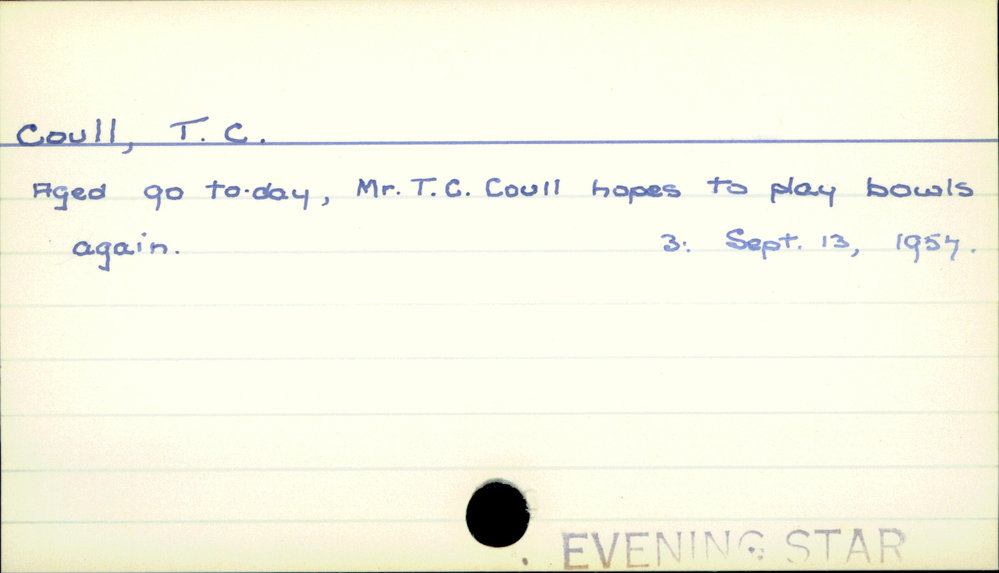 Coull, T. C.
Aged 90 to-day, Mr. T. C. Coull hopes to play bowls
again. 3: Sept. 13, 1957.
EVENING STAR